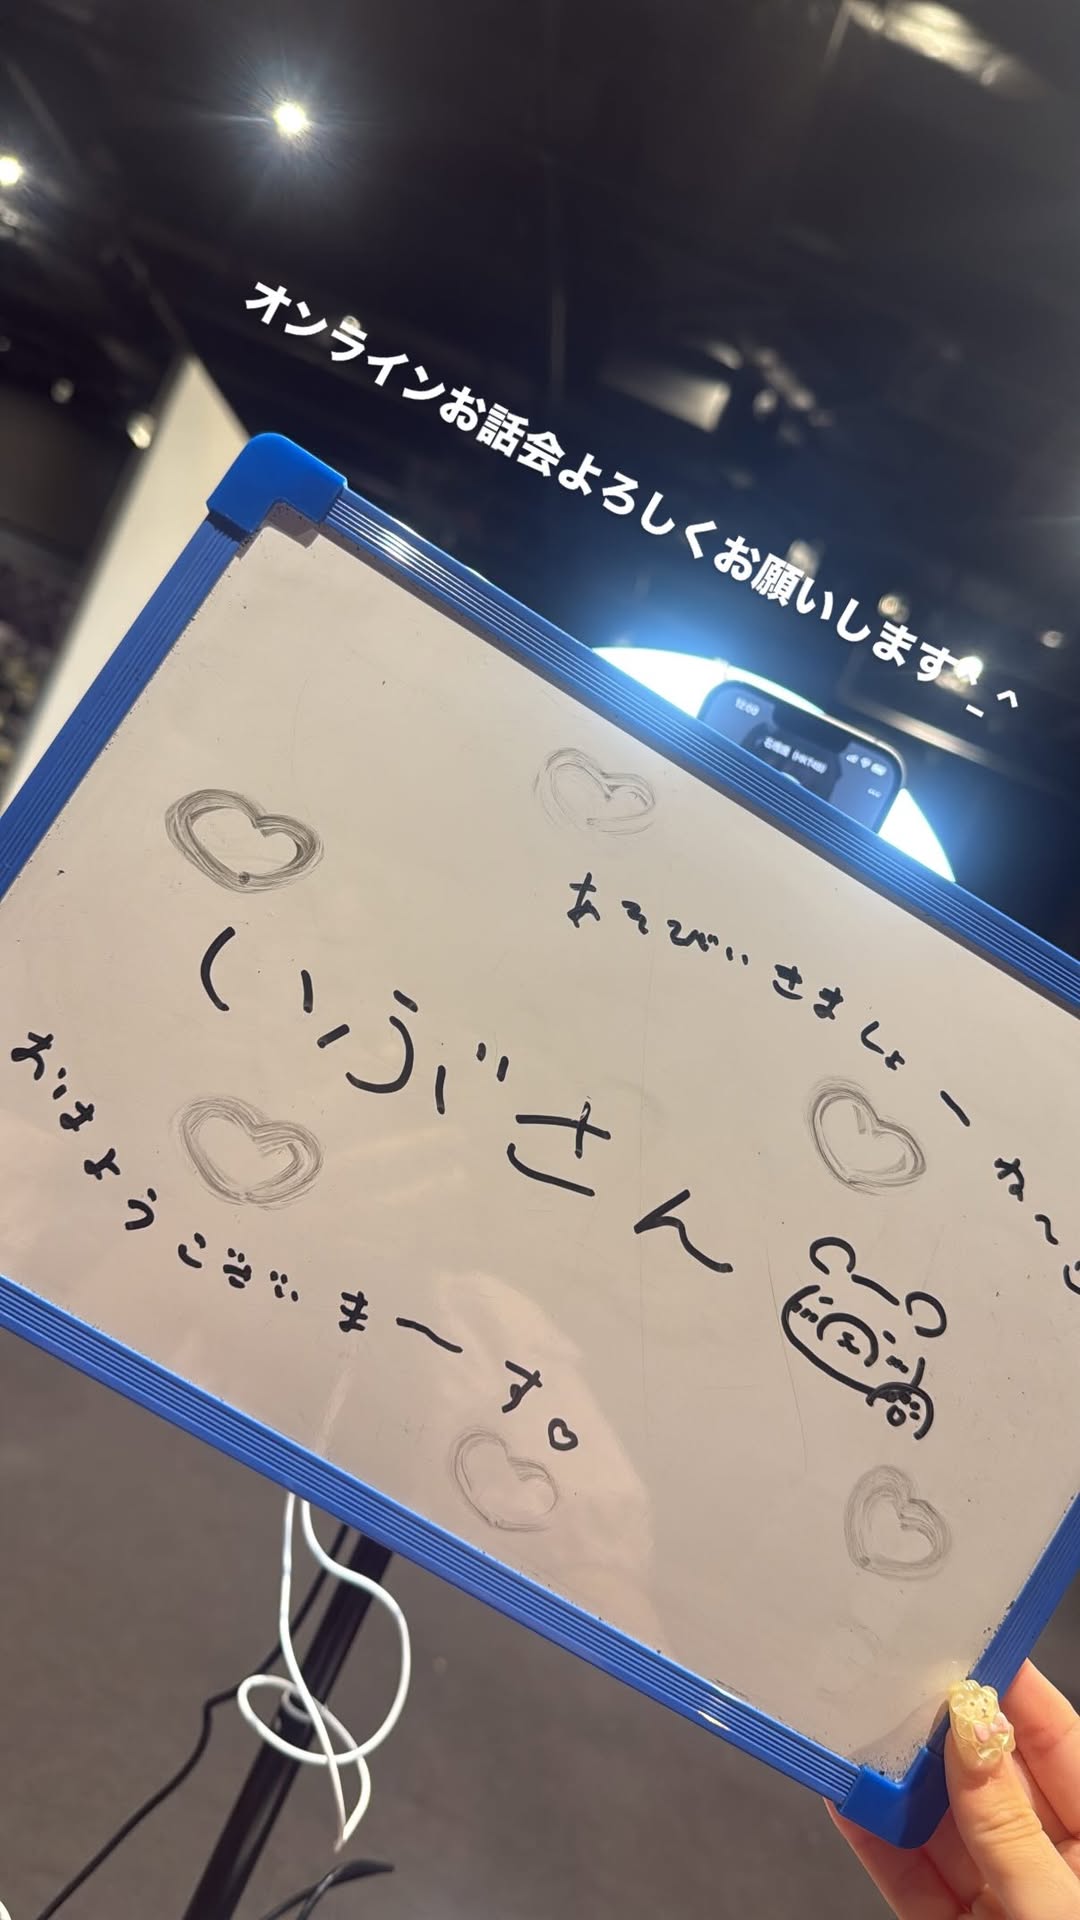 オンラインお話会よろしくお願いします^_^
12:00
あそびいきましょーね〜
いぶさん
おはようございま〜す